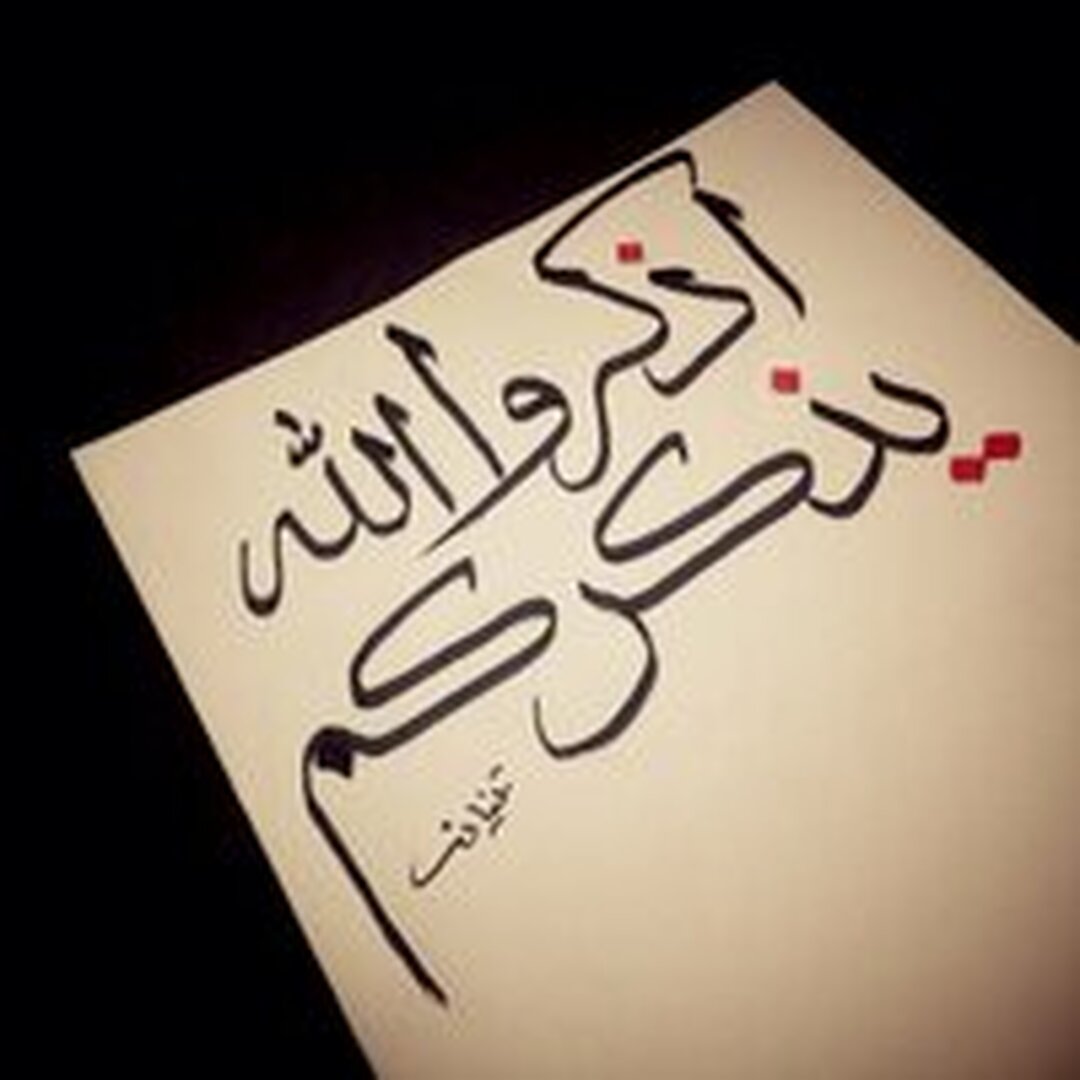 اذكروا الله
يذكركم